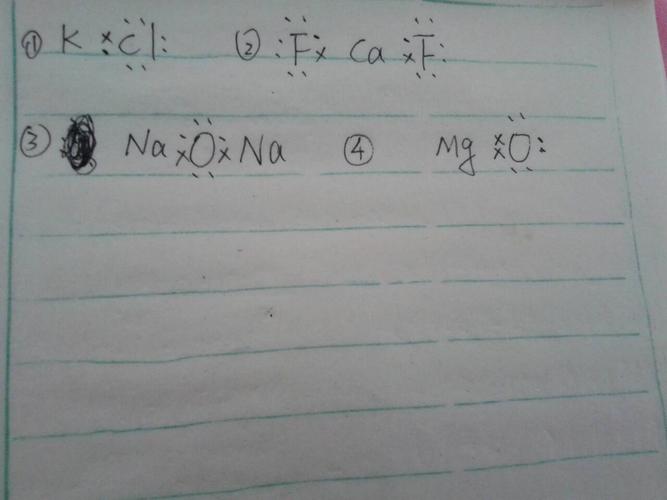 ① K ×Cl: ② :F× Ca ×F:
③ Na ×O× Na ④ Mg ××O: